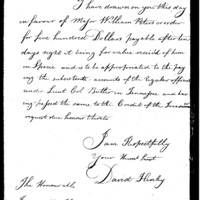 I have drawn on you this day
in favour of Major William Peters or order
for five hundred Dollars payable after ten
days sight it being for value received of him
in Specie and is to be appropriated to the pay
ing the subsistence accounts of the regular officers
under Lieut Col Butler in Tennessee, and
having passed the same to the Credit of the
request due honour thereto
I am Respectfully
Your Humt Servt
David Henley
The Honourable